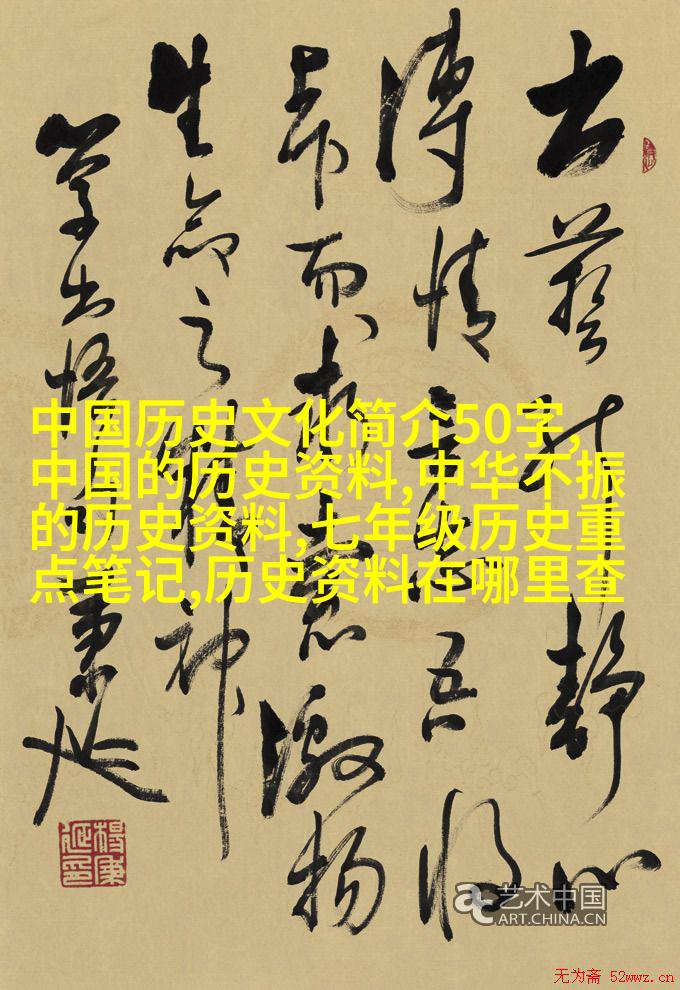 中国历史文化简介50字,
中国的历史资料,中华不振
的历史资料,七年级历史重
点笔记,历史资料在哪里查
静心
情
吾
而
激扬
生命之
神
学书悟
秉延
艺术中国
ART.CHINA.CN
无为斋 52wwz.cn